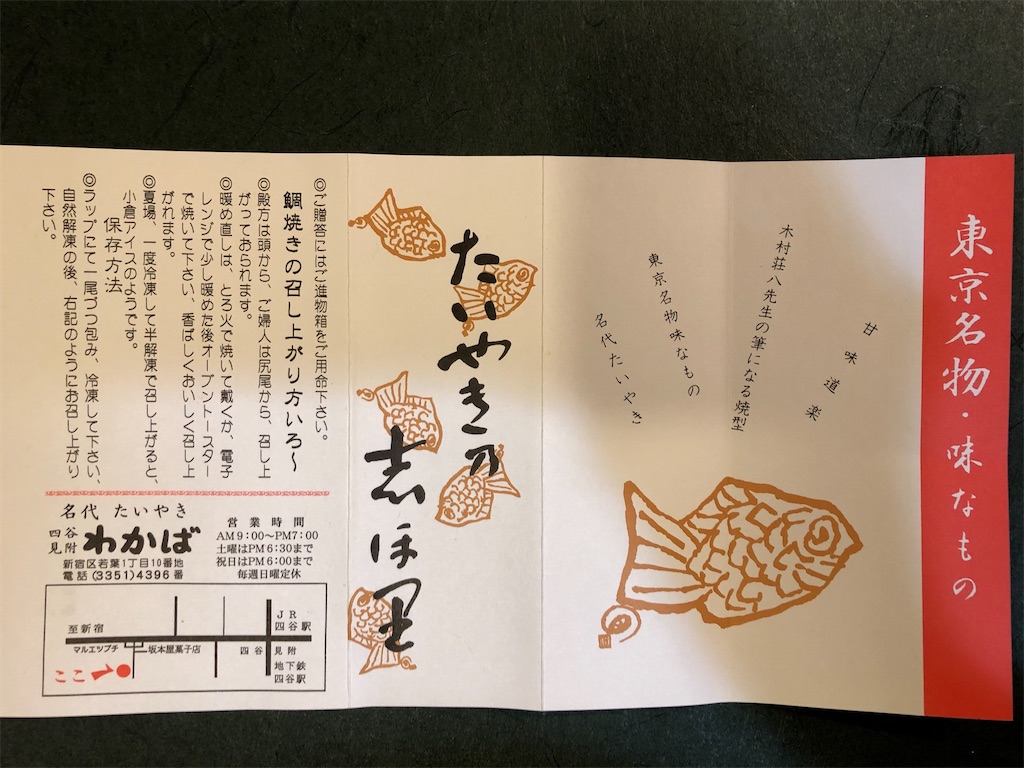 東京名物・味なもの
甘味道楽
木村荘八先生の筆になる焼型
東京名物味なもの
名代たいやき
たいやき乃
志ほ里
◎ご贈答にはご進物箱をご用命下さい。
鯛焼きの召し上がり方いろ〜
◎殿方は頭から、ご婦人は尻尾から、召し上
がっておられます。
◎暖め直しは、とろ火で焼いて戴くか、電子
レンジで少し暖めた後オーブントースター
で焼いて下さい、香ばしくおいしく召し上
がれます。
◎夏場、一度冷凍して半解凍で召し上がると、
小倉アイスのようです。
保存方法
◎ラップにて一尾づつ包み、冷凍して下さい、
自然解凍の後、右記のようにお召し上がり
下さい。
名代 たいやき
四谷見附 わかば
新宿区若葉1丁目10番地
電話(3351)4396番
営業時間
AM9:00〜PM7:00
土曜はPM6:30まで
祝日はPM6:00まで
毎週日曜定休
JR
四谷駅
至新宿
マルエツプチ
坂本屋菓子店
四谷見附
地下鉄
四谷駅
ここ